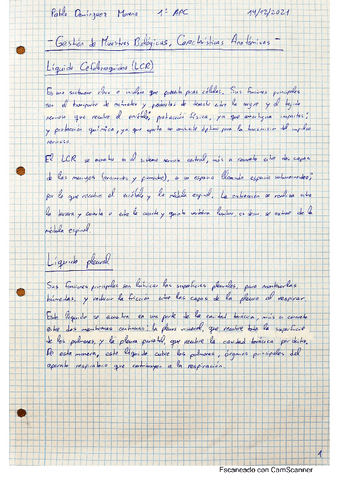 Pablo Domínguez Moreno 1º APC 14/12/2021
- Gestión de Muestras Biológicas, Características Anatómicas -
Líquido Cefalorraquídeo (LCR)
Es una sustancia clara e incolora que presenta pocas células. Sus funciones principales
son el transporte de nutrientes y productos de desecho entre la sangre y el tejido
nervioso que recubre el encéfalo, protección física, ya que amortigua impactos;
y protección química, ya que aporta un ambiente óptimo para la transmisión del impulso
nervioso.
El LCR se encuentra en el sistema nervioso central, más a concreto entre dos capas
de las meninges (aracnoides y piamadre), en un espacio llamado espacio subaracnoideo,
por lo que recubre el encéfalo y la médula espinal. La extracción se realiza entre
la tercera y cuarta o entre la cuarta y quinta vértebra lumbar, en donde se extrae de la
médula espinal.
Líquido pleural
Sus funciones principales son lubricar las superficies pleurales, para mantenerlas
húmedas, y reducir la fricción entre las capas de la pleura al respirar.
Este líquido se encuentra en una parte de la cavidad torácica, más a concreto
entre dos membranas continuas: la pleura visceral, que recubre toda la superficie
de los pulmones, y la pleura parietal, que recubre la cavidad torácica por dentro.
De esta manera, este líquido cubre los pulmones, órganos principales del
aparato respiratorio que contribuyen a la respiración.
1
Escaneado con CamScanner